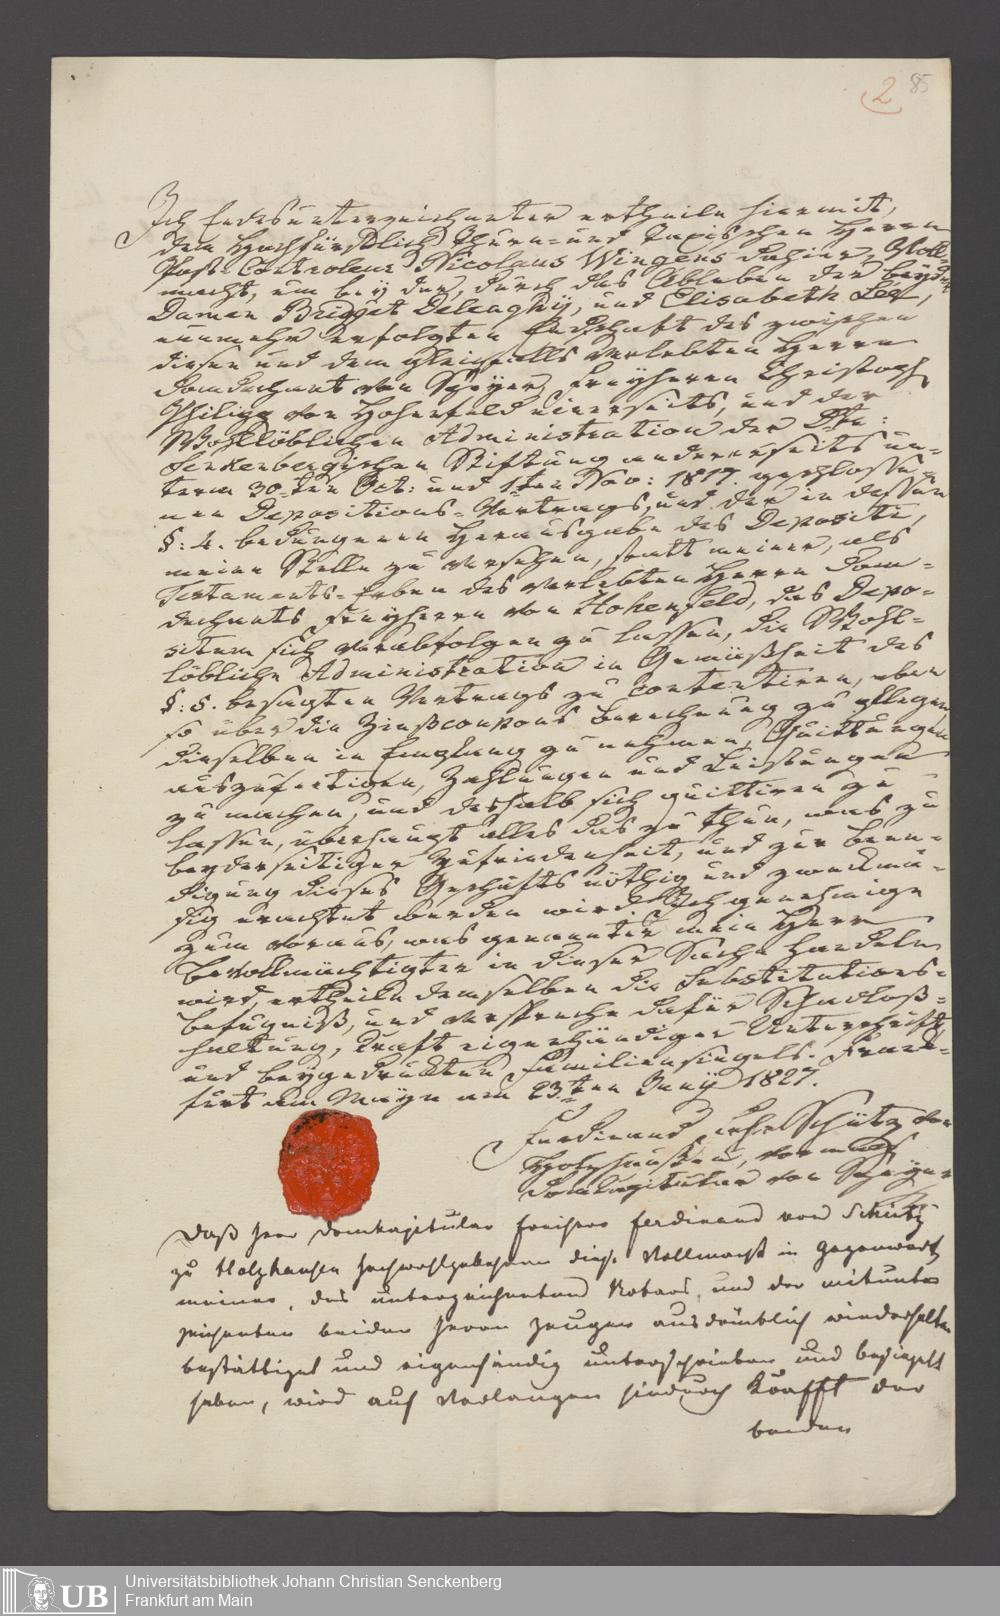 2 85
Ich Endesunterzeichneter ertheile hiermit,
dem Hochfürstlich Thurn- und Taxischen Herrn
Post-Controleur Nicolaus Wingens dahier, Voll-
macht, um bey der, durch das Ableben der beyden
Damen Bridget Deleaghij, und Elisabeth Lee,
nunmehr erfolgten Erbschaft des zwischen
diesen und dem gleichfalls verlebten Herrn
Domdechant von Speyer, Freyherrn Christoph
Philipp von Hohenfeld einerseits, und der
Wohllöblichen Administration der Dr.
Senkenbergischen Stiftung andererseits un-
term 30ten Oct: und 1ten Nov: 1817. geschlosse-
nen Depositions-Vertrags, und der in dessen
§: 4. bedungenen Herausgabe des Depositi,
meine Stelle zu versehen, statt meiner, als
Testaments-Erben des verlebten Herrn Dom-
dechants Freyherrn von Hohenfeld, das Depo-
situm sich verabfolgen zu lassen, die Wohl-
löbliche Administration in Gemäßheit des
§: 5. besagten Vertrags zu contentiren, eben
so über die Zinßcoupons Berechnung zu pflegen,
dieselben in Empfang zu nehmen, Quittungen
auszufertigen, Zahlungen und Leistungen
zu machen, und deshalb sich quittiren zu
lassen, überhaupt alles das zu thun, was zu
beyderseitiger Zufriedenheit, und zur Been-
digung dieses Geschäfts nöthig und zweckmä-
sig erachtet werden wird. Ich genehmige
zum voraus, was genannter mein Herr
Bevollmächtigter in dieser Sache handeln
wird, ertheile demselben die Substitutions-
befugniß, und verspreche dafür Schadloß-
haltung, Kraft eigenhändiger Unterschrift,
und beygedruckten Familiensiegels. Frank-
furt am Mayn am 23ten Juny 1827.
Ferdinand Schütz von
Holzhausen, vormals
Domkapitular von Speyer
Daß Herr Domkapitular Freiherr Ferdinand von Schütz
zu Holzhausen hochwohlgebohren diese Vollmacht in Gegenwart
meiner, des unterzeichneten Notars, und der mitunter-
zeichneten beiden Herrn Zeugen ausdrücklich wiederholter
bestättiget und eigenhändig unterschrieben und besiegelt
haben, wird auf Verlangen hiedurch Krafft der
beiden
UB Universitätsbibliothek Johann Christian Senckenberg
Frankfurt am Main